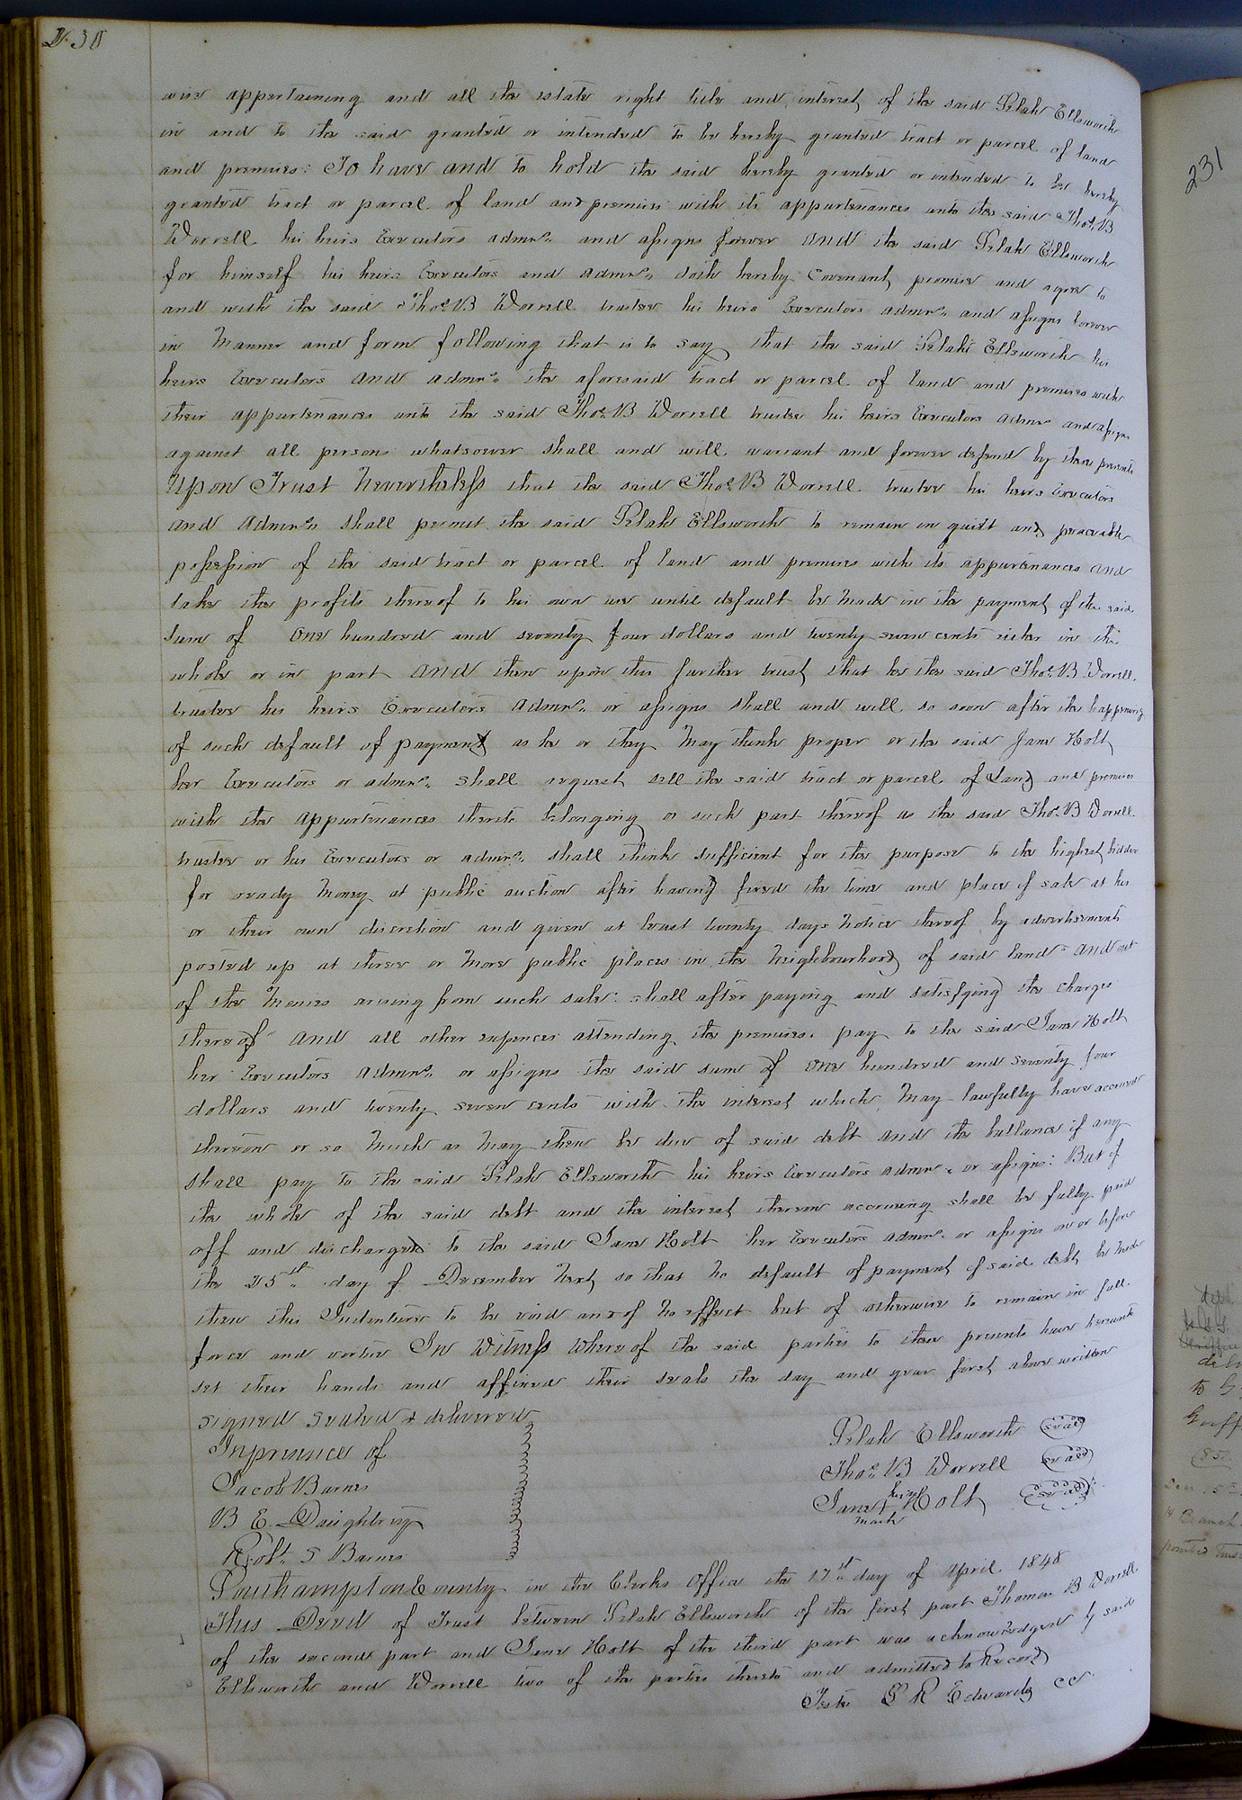 230
wise appertaining and all the estate right title and interest of the said Pelah Ellsworth
in and to the said granted or intended to be hereby granted tract or parcel of land
and premises: To have and to hold the said hereby granted or intended to be hereby
granted tract or parcel of land and premises with its appurtenances unto the said Thos. B
Worrell his heirs Executors admrs. and assigns forever and the said Pelah Ellsworth
for himself his heirs Executors and admrs. doth hereby Covenant, promise and agree to
and with the said Thos. B Worrell trustee his heirs Executors admrs. and assigns forever
in Manner and form following that is to say, that the said Pelah Ellsworth his
heirs Executors and admrs. the aforesaid tract or parcel of land and premises with
their appurtenances unto the said Thos. B Worrell trustee his heirs Executors admrs and assigns
against all persons whatsoever shall and will warrant and forever defend by these presents
Upon Trust Nevertheless that the said Thos. B Worrell trustee his heirs Executors
and Admrs. shall permit the said Pelah Ellsworth to remain in quiet and peaceable
possession of the said tract or parcel of land and premises with its appurtenances and
take the profits thereof to his own use until default be made in the payment of the said
Sum of One hundred and seventy four dollars and twenty seven cents either in the
whole or in part and then upon this further trust that he the said Thos. B Worrell
trustee his heirs Executors Admrs. or assigns shall and will so soon after the happening
of such default of payment as he or they May think proper or the said Jane Holt
her Executors or admrs. shall request, sell the said tract or parcel of Land and premises
with the appurtenances thereto belonging or such part thereof as the said Thos. B Worrell
trustee or his Executors or admrs. shall think sufficient for the purpose to the highest bidder
for ready Money at public auction after having fixed the time and place of sale at his
or their own discretion and given at least twenty days Notice thereof by advertisements
posted up at three or More public places in the Neighbourhood of said land and out
of the Monies arising from such sale: shall after paying and satisfying the charges
thereof and all other expences attending the premises. pay to the said Jane Holt
her Executors admrs. or assigns the said sum of One hundred and seventy four
dollars and twenty seven cents with the interest which May lawfully have accrued
thereon or so Much as May then be due of said debt and the ballance if any
shall pay to the said Pelah Ellsworth his heirs Executors admrs. or assigns: But if
the whole of the said debt and the interest thereon accruing shall be fully paid
off and discharged to the said Jane Holt her Executors admrs. or assigns on or before
the 25th day of December Next, so that no default of payment of said debt be made
then this Indenture to be void and of No effect but of otherwise to remain in full
force and vertue In Witness Whereof the said parties to these presents have hereunto
set their hands and affixed their seals the day and year first above written
signed sealed & delivered
In presence of
Jacob Barnes
B E. Daughtrey
Robt. S Barnes
Pelah Ellsworth (seal)
Thos. B Worrell (seal)
Jane her + mark Holt (seal)
Southampton County in the Clerks Office the 17th day of April 1848
This Deed of Trust between Pelah Ellsworth of the first part Thomas B Worrell
of the second part and Jane Holt of the third part was acknowledged by said
Ellsworth and Worrell two of the parties thereto and admitted to Record
Teste L R Edwards CC
231